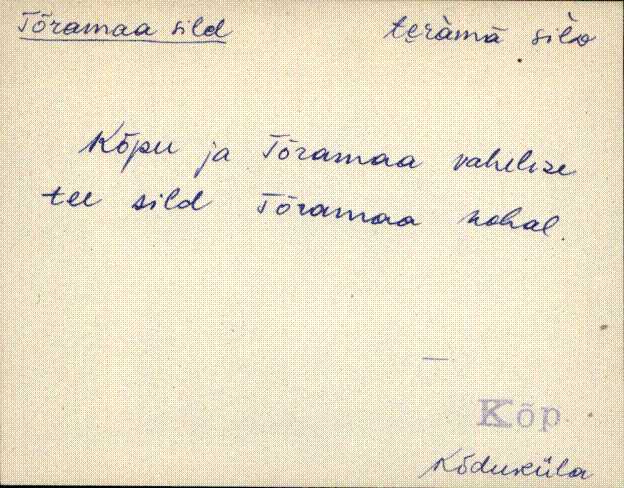 Tõramaa sild terämä silo
Kõpu ja Tõramaa vahelise
tee sild Tõramaa kohal.
—
Kõp
Kõduküla